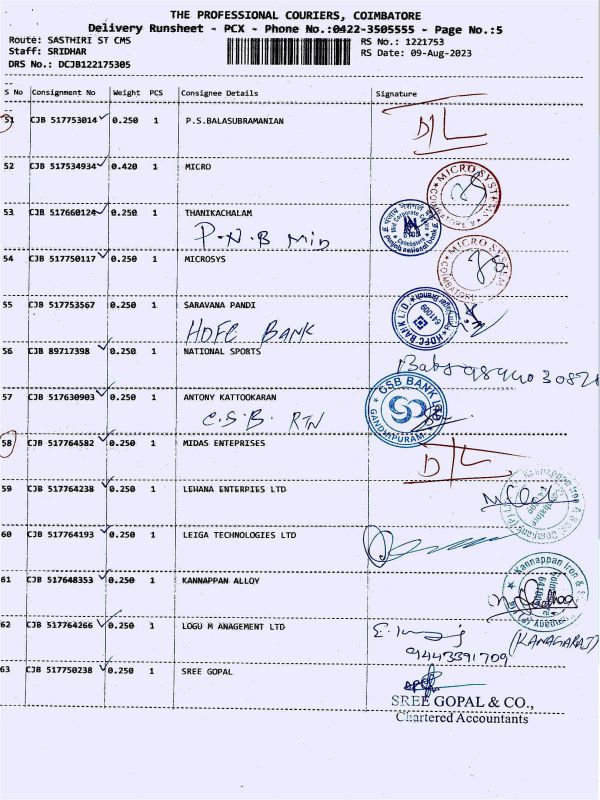 THE PROFESSIONAL COURIERS, COIMBATORE
Delivery Runsheet - PCX - Phone No.:0422-3505555 - Page No.:5
Route: SASTHIRI ST CMS RS No.: 1221753
Staff: SRIDHAR RS Date: 09-Aug-2023
DRS No.: DCJB122175305
S No Consignment No Weight PCS Consignee Details Signature
51 CJB 517753014 0.250 1 P.S.BALASUBRAMANIAN D/L
52 CJB 517534934 0.420 1 MICRO
MICRO SYSTEMS
COIMBATORE
53 CJB 517660124 0.250 1 THANIKACHALAM
P.N.B Min
Mid Corporate Centre
Coimbatore
punjab national bank
54 CJB 517750117 0.250 1 MICROSYS
MICRO SYSTEMS
COIMBATORE
55 CJB 517753567 0.250 1 SARAVANA PANDI
HDFC BANK
HDFC BANK LTD.
641009
56 CJB 89717398 0.250 1 NATIONAL SPORTS
57 CJB 517630903 0.250 1 ANTONY KATTOOKARAN
C.S.B. RTN
CSB BANK
GANDHIPURAM
58 CJB 517764582 0.250 1 MIDAS ENTEPRISES D/L
59 CJB 517764238 0.250 1 LEHANA ENTERPIES LTD
Kannappan Iron &
Coimbatore
60 CJB 517764193 0.250 1 LEIGA TECHNOLOGIES LTD
61 CJB 517648353 0.250 1 KANNAPPAN ALLOY
Kannappan Iron &
(KANAGARAJ)
62 CJB 517764266 0.250 1 LOGU M ANAGEMENT LTD
9443391709
63 CJB 517750238 0.250 1 SREE GOPAL
SREE GOPAL & CO.,
Chartered Accountants